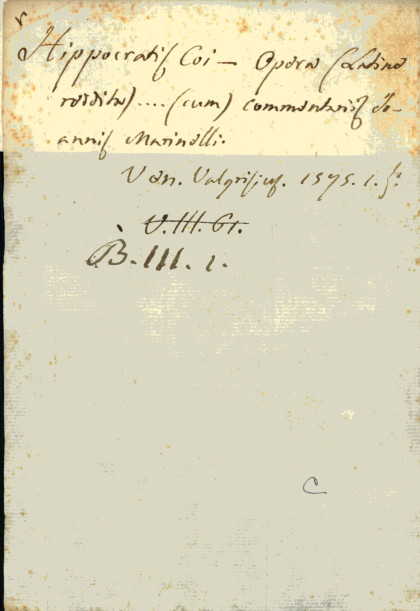 Hippocratis Coi — Opera (Latine
reddita) .... (cum) commentariis Jo-
annis Marinelli.
Ven. Valgrisius. 1575. 1. f.º
V.III.61.
B.III.1.
C